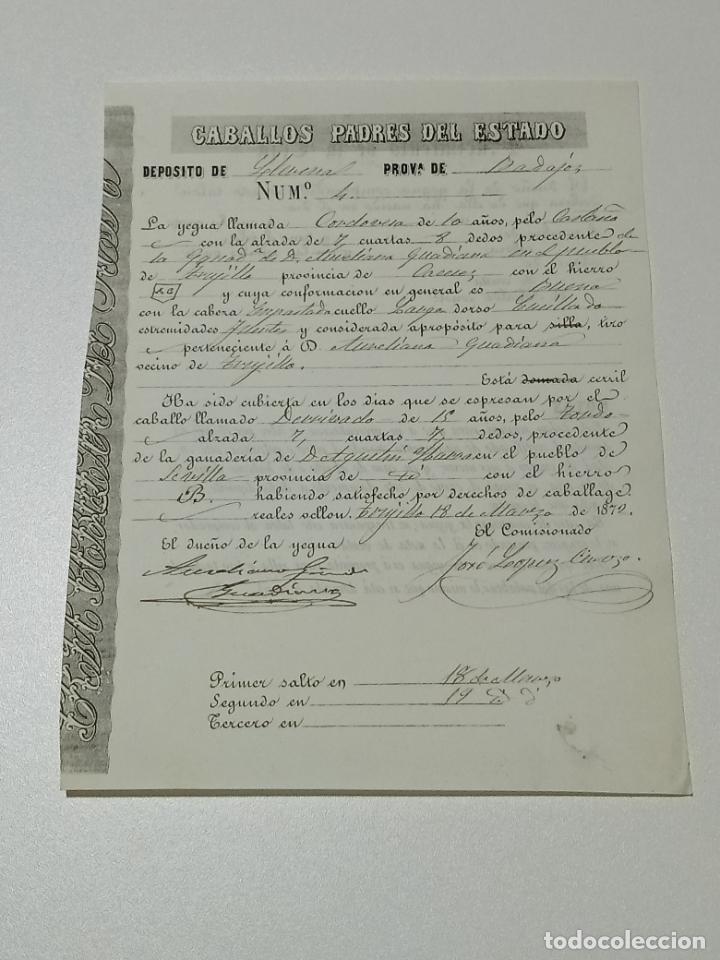 CABALLOS PADRES DEL ESTADO
DEPOSITO DE Llerena PROVª DE Badajoz
NUMº 4.
La yegua llamada Cordovesa de 10 años, pelo Castaño
con la alzada de 7 cuartas 8 dedos procedente de
la de D. Aureliano Guadiana en el pueblo
de Trujillo provincia de Caceres con el hierro
y cuya conformacion en general es Buena
con la cabeza cuello Largo dorso Ensillado
estremidades y considerada apropósito para silla, tiro
perteneciente á D. Aureliano Guadiana
vecino de Trujillo.
Está domada cerril
Ha sido cubierta en los dias que se espresan por el
caballo llamado de 15 años, pelo Tordo
alzada 7, cuartas 7, dedos, procedente
de la ganadería de D Agustin en el pueblo de
Sevilla provincia de con el hierro
B. habiendo satisfecho por derechos de caballage
reales vellon. Trujillo 18 de Marzo de 1872.
El dueño de la yegua El Comisionado
Aureliano José Lopez
Guadiana
Primer salto en 18 de Marzo
Segundo en 19
Tercero en
todocoleccion
todocoleccion.net